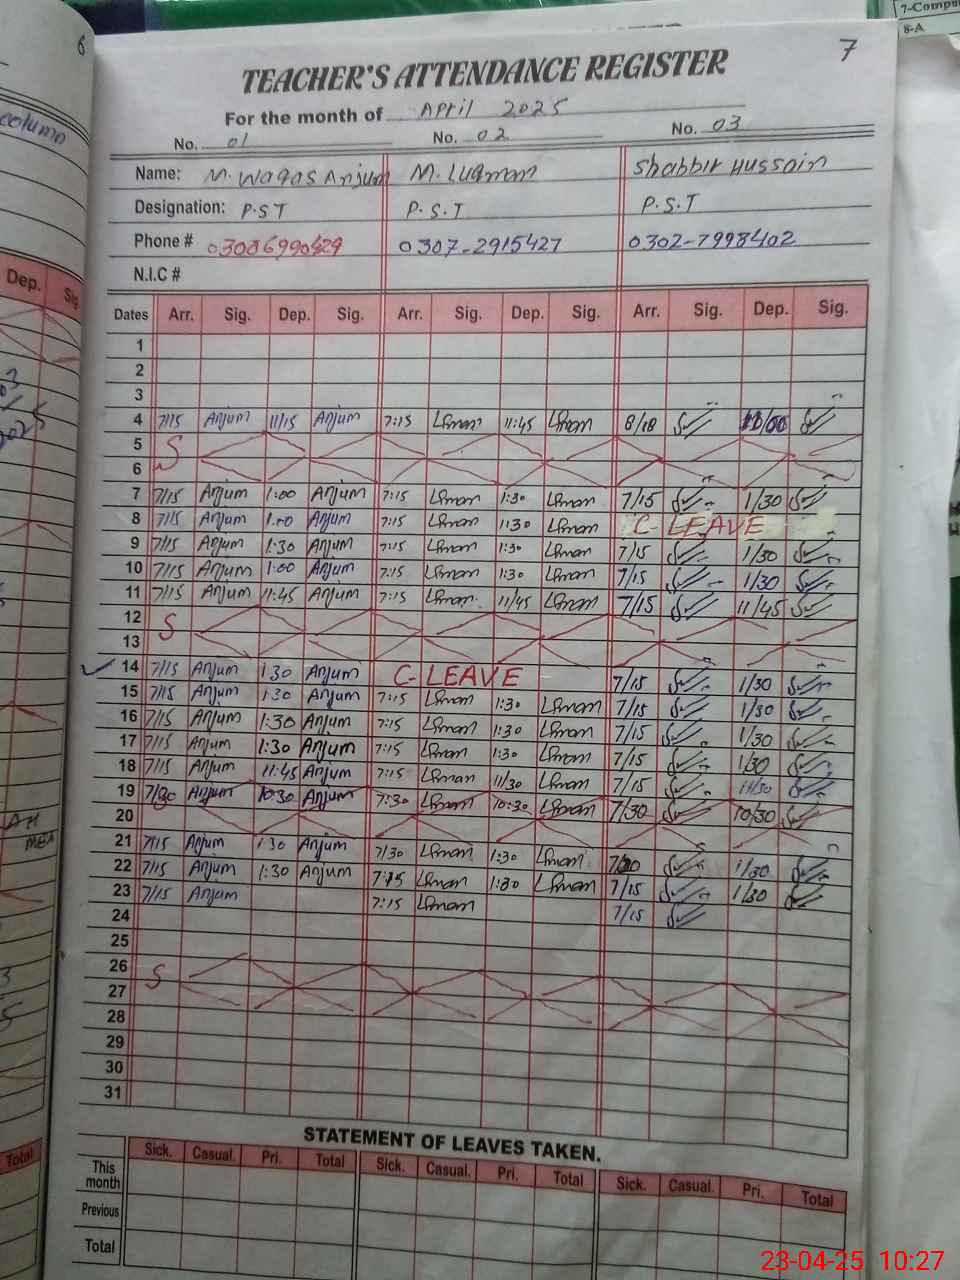 7-Compu
8-A
6
7
column
TEACHER'S ATTENDANCE REGISTER
For the month of April 2025
No. 01 No. 02 No. 03
Name: M. Waqas Anjum M. Luqman Shabbir Hussain
Designation: P.S.T P.S.T P.S.T
Phone # 03086990429 0307-2915427 0302-7998402
N.I.C #
Dep. Sig
Dates Arr. Sig. Dep. Sig. Arr. Sig. Dep. Sig. Arr. Sig. Dep. Sig.
1
2
3
4 7/15 Anjum 11/15 Anjum 7:15 11:45 8/10
5 S
6
7 7/15 Anjum 1:00 Anjum 7:15 1:30 7/15 1/30
8 7/15 Anjum 1:00 Anjum 7:15 1:30 C-LEAVE
9 7/15 Anjum 1:30 Anjum 7:15 1:30 7/15 1/30
10 7/15 Anjum 1:00 Anjum 7:15 1:30 7/15 1/30
11 7/15 Anjum 11:45 Anjum 7:15 11/45 7/15 11/45
12 S
13
14 7/15 Anjum 1:30 Anjum C-LEAVE 7/15 1/30
15 7/15 Anjum 1:30 Anjum 7:15 1:30 7/15 1/30
16 7/15 Anjum 1:30 Anjum 7:15 1:30 7/15 1/30
17 7/15 Anjum 1:30 Anjum 7:15 1:30 7/15 1/30
18 7/15 Anjum 11:45 Anjum 7:15 11/30 7/15 11/30
19 7/30 Anjum 10:30 Anjum 7:30 10:30 7/30 10/30
20
21 7/15 Anjum 1:30 Anjum 7/30 1:30 1/30
22 7/15 Anjum 1:30 Anjum 7:15 1:30 7/15 1/30
23 7/15 Anjum 7:15 7/15
24
25
26 S
27
28
29
30
31
STATEMENT OF LEAVES TAKEN.
Sick. Casual. Pri. Total Sick. Casual. Pri. Total Sick. Casual. Pri. Total
This month
Previous
Total
Total
23-04-25 10:27